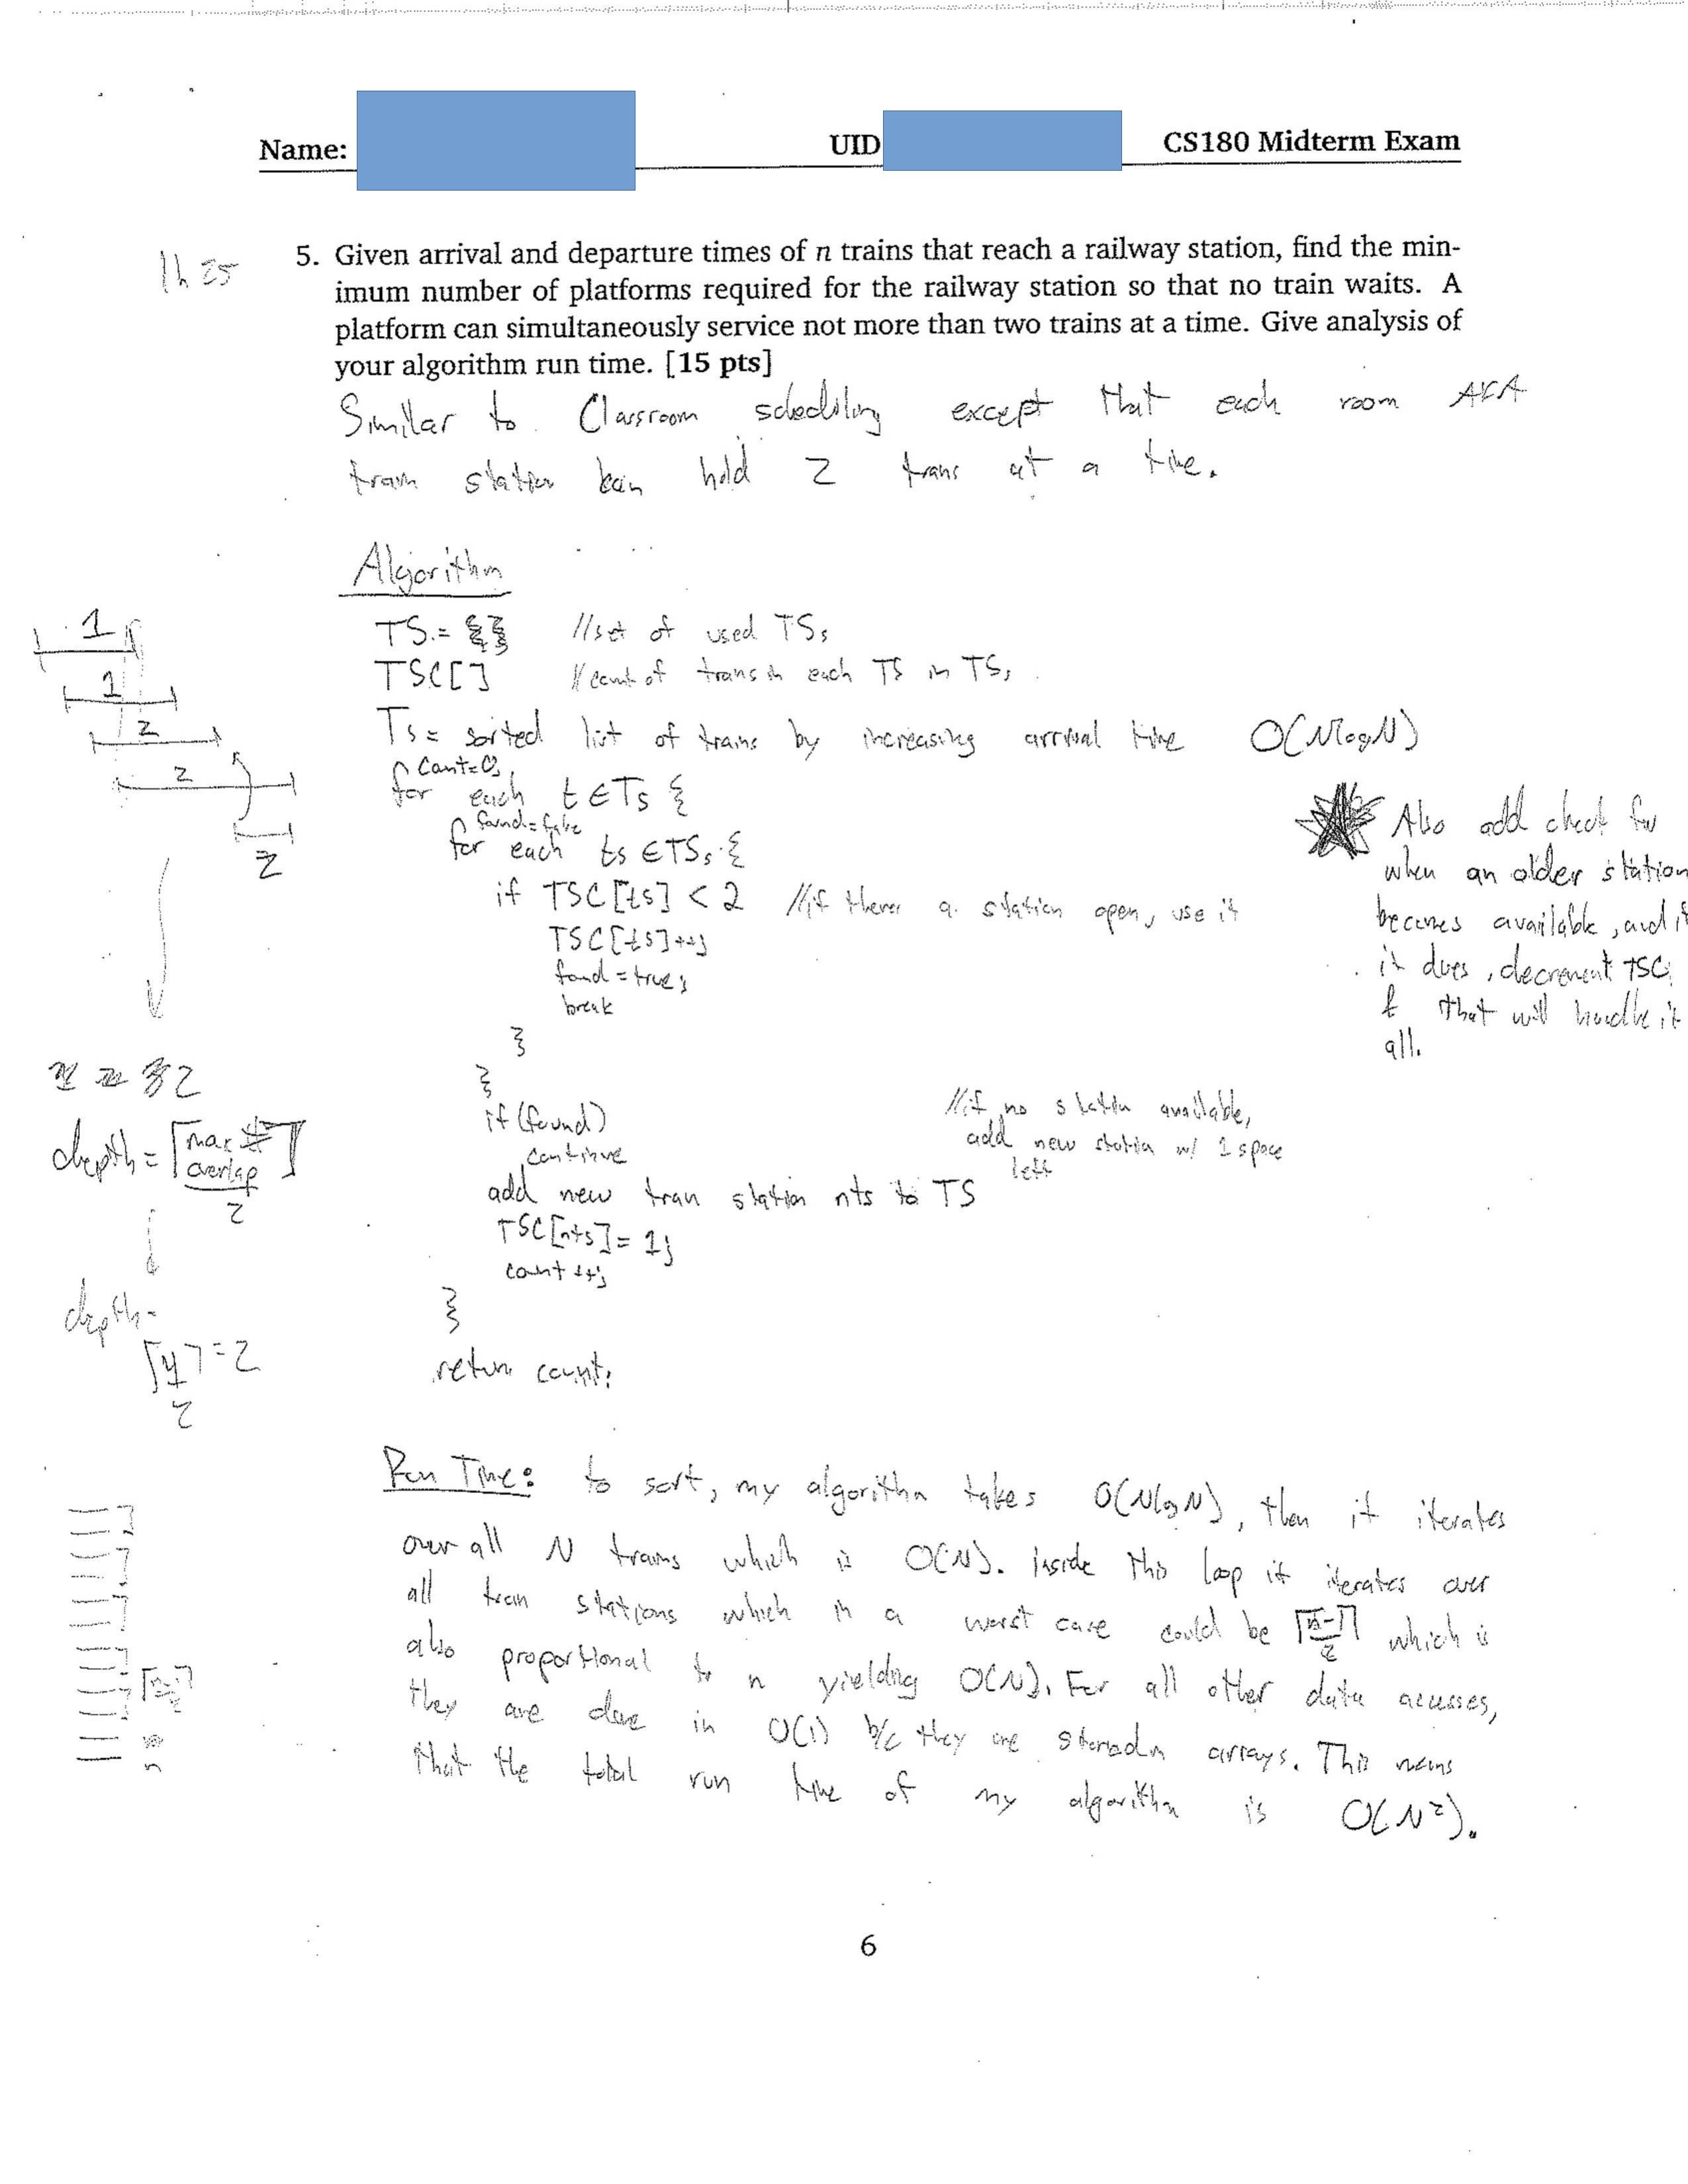 Name:
UID
CS180 Midterm Exam
1h 25
5. Given arrival and departure times of n trains that reach a railway station, find the min-
imum number of platforms required for the railway station so that no train waits. A
platform can simultaneously service not more than two trains at a time. Give analysis of
your algorithm run time. [15 pts]
Similar to Classroom scheduling except that each room AKA
train station can hold 2 trains at a time.
Algorithm
TS = {} //set of used TSs
TSC[] //count of trains in each TS in TSs
Ts = sorted list of trains by increasing arrival time O(NlogN)
count=0;
for each t ∈ Ts {
found=false
for each ts ∈ TSs {
if TSC[ts] < 2 //if theres a station open, use it
TSC[ts]++;
found = true;
break
}
}
if (found)
continue
//if no station available,
add new station w/ 1 space
left
add new train station nts to TS
TSC[nts] = 1;
count++;
}
return count;
Also add check for
when an older station
becomes available, and if
it does, decrement TSC
& that will handle it
all.
1
1
2
2
2
2
depth = ⌈max # overlap / 2⌉
depth =
⌈4/2⌉ = 2
Run Time: to sort, my algorithm takes O(NlogN), then it iterates
over all N trains which is O(N). Inside this loop it iterates over
all train stations which in a worst case could be ⌈n-1/2⌉ which is
also proportional to n yielding O(N). For all other data accesses,
they are done in O(1) b/c they are stored in arrays. This means
that the total run time of my algorithm is O(N²).
⌈n-1/2⌉
n
6